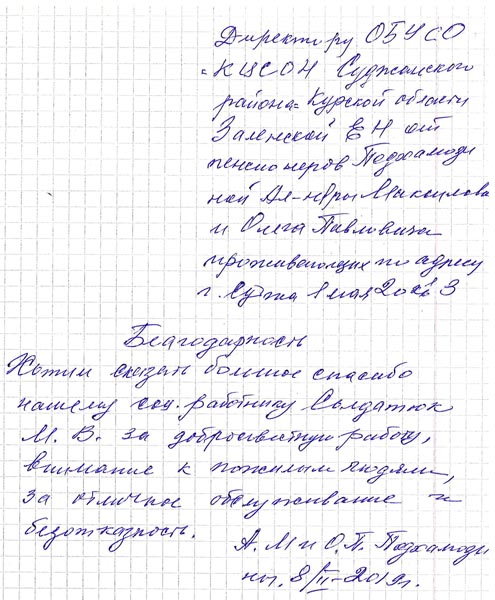 Директору ОБУСО
"КЦСОН Суджанского
района" Курской области
Заленской Е Н от
пенсионеров Подхамоди
ной Ал-ндры Максимовн
и Олега Павловича
проживающих по адресу
г. Суджа 1 мая 20 кв 3
Благодарность
Хотим сказать большое спасибо
нашему соц. работнику Солдатюк
М. В. за добросовестную работу,
внимание к пожилым людям,
за отличное обслуживание и
безотказность.
А. М и О. П. Подхамоди
ны. 8/II-2019г.